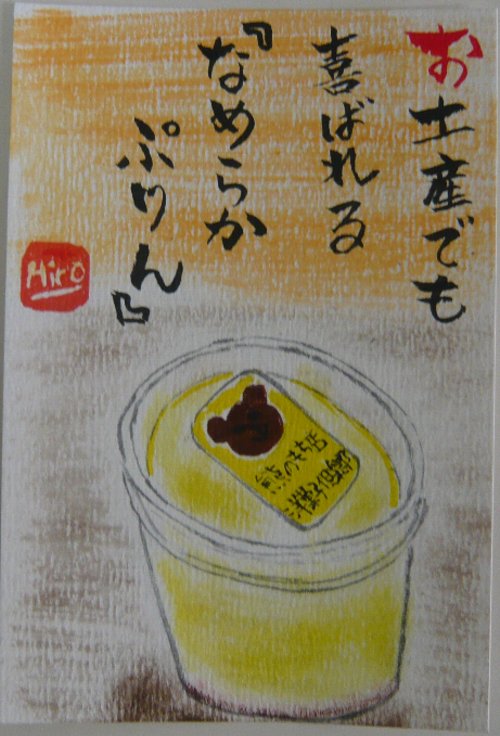 お土産でも
喜ばれる
『なめらか
ぷりん』
Hiro
熊のもち店